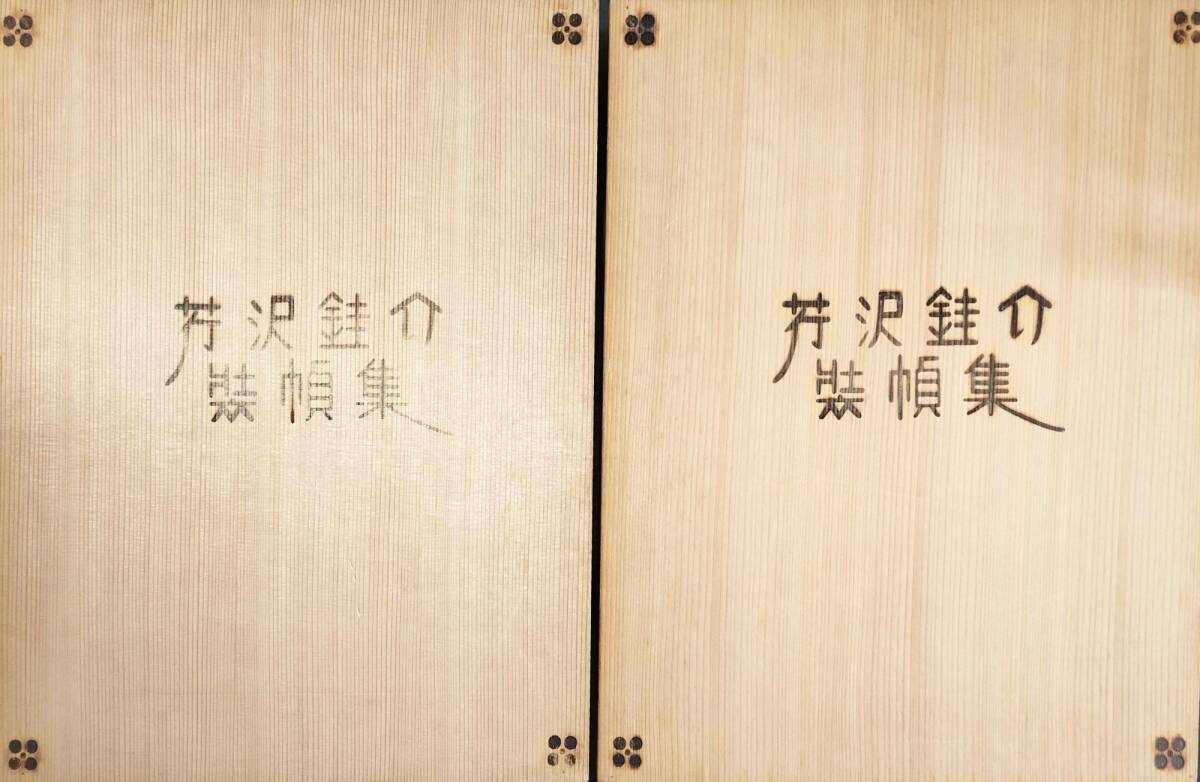 芹沢銈介
装幀集
芹沢銈介
装幀集